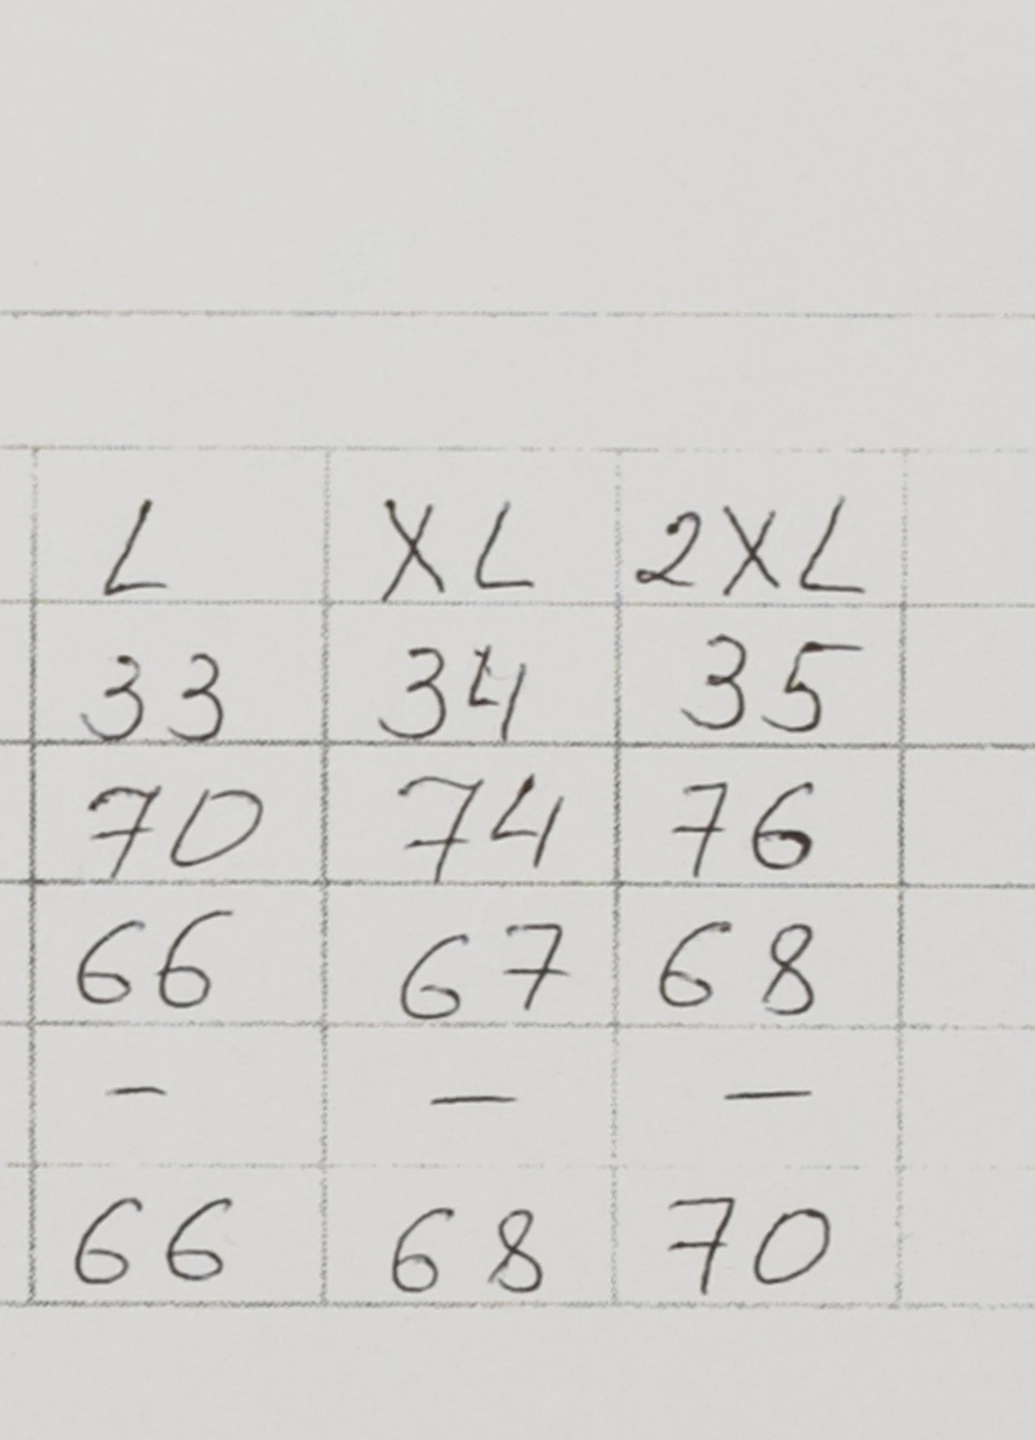 L XL 2XL
33 34 35
70 74 76
66 67 68
– — —
66 68 70